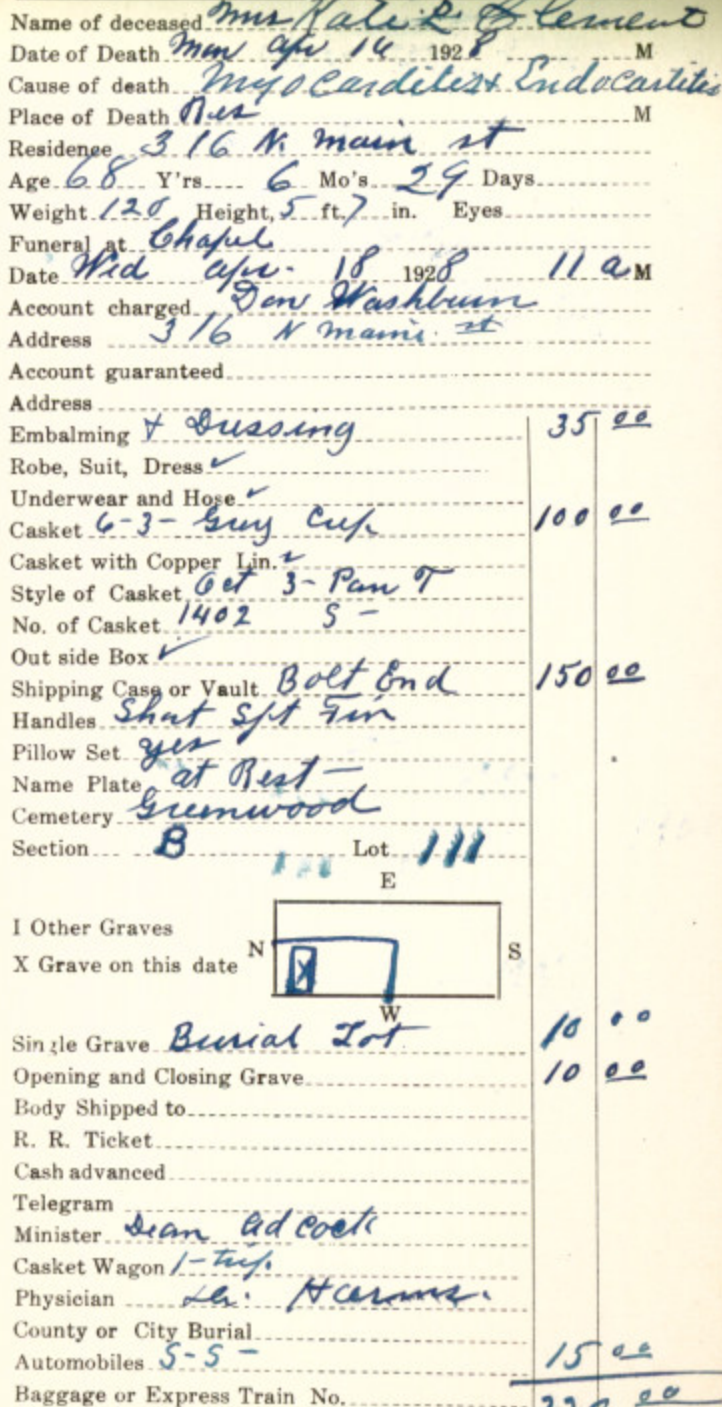 Name of deceased Mrs Kate L. Clement
Date of Death Mon Apr 16 1928 M
Cause of death Myocarditis & Endocartitis
Place of Death Res M
Residence 316 N. Main st
Age 68 Y'rs 6 Mo's 29 Days
Weight 120 Height, 5 ft. 7 in. Eyes
Funeral at Chapel
Date Wed Apr. 18 1928 11 a M
Account charged Don Washburn
Address 316 N Main st
Account guaranteed
Address
Embalming + Dressing 35 00
Robe, Suit, Dress ✓
Underwear and Hose ✓
Casket 6-3- Grey Crep. 100 00
Casket with Copper Lin. ✓
Style of Casket Oct 3- Pan T
No. of Casket 1402 S -
Out side Box ✓
Shipping Case or Vault Bolt End 150 00
Handles Short Fin
Pillow Set yes
Name Plate at Rest -
Cemetery Greenwood
Section B Lot 111
E
I Other Graves
N S
X Grave on this date X
W
Single Grave Burial Lot 10 00
Opening and Closing Grave 10 00
Body Shipped to
R. R. Ticket
Cash advanced
Telegram
Minister Dean Adcock
Casket Wagon 1-trip.
Physician Dr. Harms.
County or City Burial
Automobiles S-S- 15 00
Baggage or Express Train No. 00